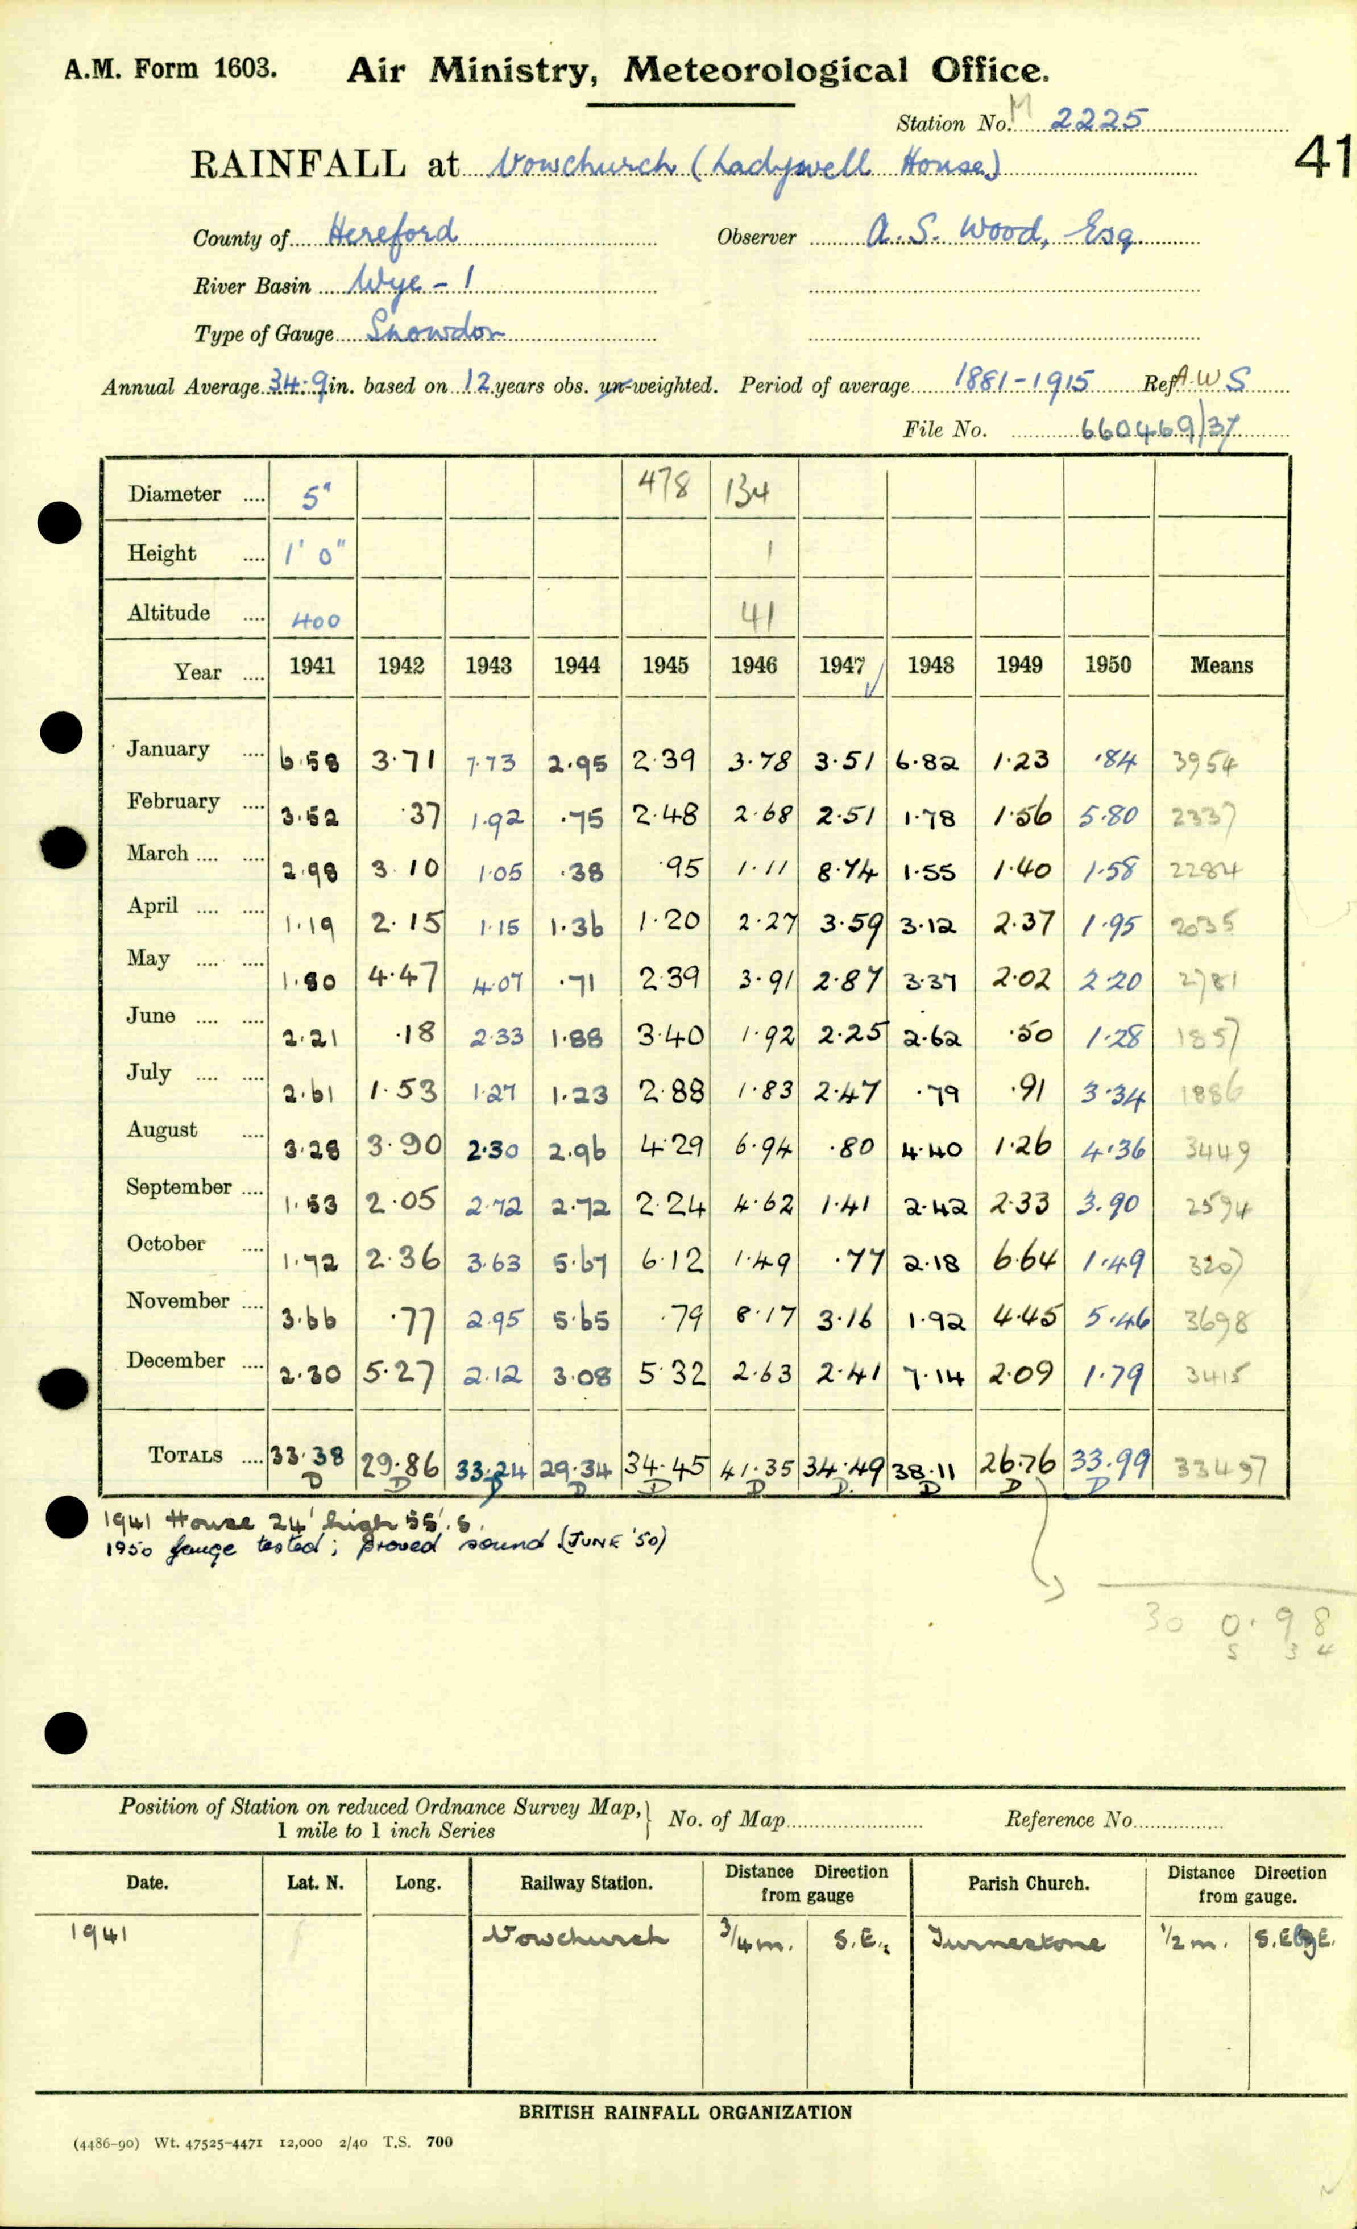 A.M. Form 1603. Air Ministry, Meteorological Office.
Station No. M 2225
41
RAINFALL at Vowchurch (Ladywell House)
County of Hereford Observer A. S. Wood, Esq.
River Basin Wye - 1
Type of Gauge Snowdon
Annual Average 34.9 in. based on 12 years obs. un-weighted. Period of average 1881-1915 Ref. A.W S
File No. 660469/37
Diameter .... 5" 478 134
Height .... 1' 0" 1
Altitude .... 400 41
Year .... 1941 1942 1943 1944 1945 1946 1947 1948 1949 1950 Means
January .... 6.58 3.71 7.73 2.95 2.39 3.78 3.51 6.82 1.23 .84 3954
February .... 3.52 .37 1.92 .75 2.48 2.68 2.51 1.78 1.56 5.80 2337
March .... .... 2.98 3.10 1.05 .38 .95 1.11 8.74 1.55 1.40 1.58 2284
April .... .... 1.19 2.15 1.15 1.36 1.20 2.27 3.59 3.12 2.37 1.95 2035
May .... .... 1.80 4.47 4.07 .71 2.39 3.91 2.87 3.37 2.02 2.20 2781
June .... .... 2.21 .18 2.33 1.88 3.40 1.92 2.25 2.62 .50 1.28 1857
July .... .... 2.61 1.53 1.27 1.23 2.88 1.83 2.47 .79 .91 3.34 1886
August .... 3.28 3.90 2.30 2.96 4.29 6.94 .80 4.40 1.26 4.36 3449
September .... 1.53 2.05 2.72 2.72 2.24 4.62 1.41 2.42 2.33 3.90 2594
October .... 1.72 2.36 3.63 5.67 6.12 1.49 .77 2.18 6.64 1.49 3207
November .... 3.66 .77 2.95 5.65 .79 8.17 3.16 1.92 4.45 5.46 3698
December .... 2.30 5.27 2.12 3.08 5.32 2.63 2.41 7.14 2.09 1.79 3415
TOTALS .... 33.38 29.86 33.24 29.34 34.45 41.35 34.49 38.11 26.76 33.99 33497
D D D D D D D. D D D
1941 House 24' high 55'. S.
1950 gauge tested; proved sound (JUNE '50)
30 0.98
5 3 4
Position of Station on reduced Ordnance Survey Map, 1 mile to 1 inch Series } No. of Map Reference No.
Date. Lat. N. Long. Railway Station. Distance Direction from gauge Parish Church. Distance Direction from gauge.
1941 Vowchurch 3/4 m. S.E. Turnestone 1/2 m. S.E by E.
BRITISH RAINFALL ORGANIZATION
(4486-90) Wt. 47525-4471 12,000 2/40 T.S. 700